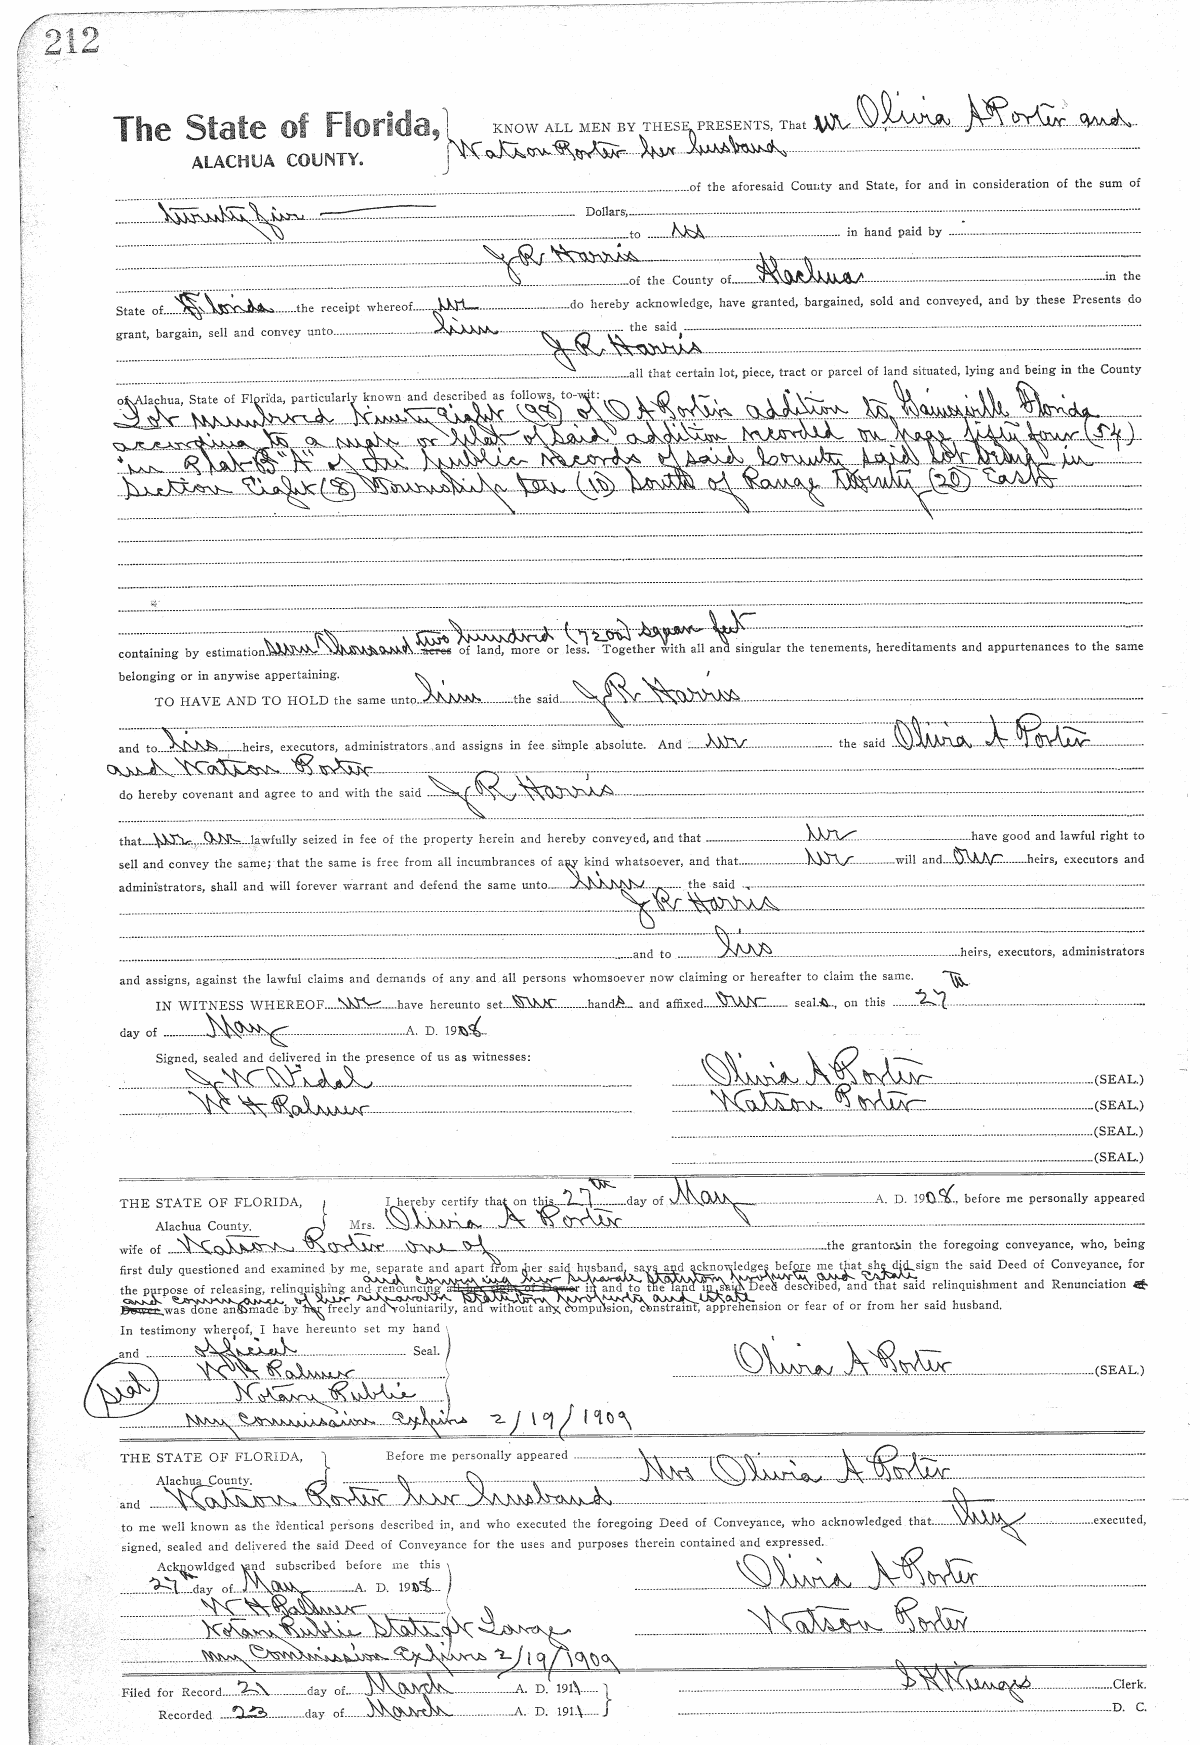 212
The State of Florida,
ALACHUA COUNTY.
KNOW ALL MEN BY THESE PRESENTS, That we Olivia A Porter and
Watson Porter her husband
of the aforesaid County and State, for and in consideration of the sum of
twenty five Dollars,
to us in hand paid by
J R Harris
of the County of Alachua in the
State of Florida the receipt whereof we do hereby acknowledge, have granted, bargained, sold and conveyed, and by these Presents do
grant, bargain, sell and convey unto him the said
J R Harris
all that certain lot, piece, tract or parcel of land situated, lying and being in the County
of Alachua, State of Florida, particularly known and described as follows, to-wit:
Lot numbered Ninety Eight (98) of O A Porter's addition to Gainesville Florida
according to a map or plat of said addition recorded on page fifty four (54)
in Plat B "A" of the public records of said County said lot being in
Section Eight (8) Township ten (10) South of Range Twenty (20) East
containing by estimation seven Thousand two hundred (7200) square feet acres of land, more or less. Together with all and singular the tenements, hereditaments and appurtenances to the same
belonging or in anywise appertaining.
TO HAVE AND TO HOLD the same unto him the said J R Harris
and to his heirs, executors, administrators and assigns in fee simple absolute. And we the said Olivia A Porter
and Watson Porter
do hereby covenant and agree to and with the said J R Harris
that we are lawfully seized in fee of the property herein and hereby conveyed, and that we have good and lawful right to
sell and convey the same; that the same is free from all incumbrances of any kind whatsoever, and that we will and our heirs, executors and
administrators, shall and will forever warrant and defend the same unto him the said
J R Harris
and to his heirs, executors, administrators
and assigns, against the lawful claims and demands of any and all persons whomsoever now claiming or hereafter to claim the same.
IN WITNESS WHEREOF we have hereunto set our hands and affixed our seals, on this 27th
day of May A. D. 1908
Signed, sealed and delivered in the presence of us as witnesses:
J W Vidal Olivia A Porter (SEAL.)
W H Palmer Watson Porter (SEAL.)
(SEAL.)
(SEAL.)
THE STATE OF FLORIDA, I hereby certify that on this 27th day of May A. D. 1908, before me personally appeared
Alachua County. Mrs. Olivia A Porter
wife of Watson Porter one of the grantors in the foregoing conveyance, who, being
first duly questioned and examined by me, separate and apart from her said husband, says and acknowledges before me that she did sign the said Deed of Conveyance, for
and conveying her separate statutory property and Estate
the purpose of releasing, relinquishing and renouncing all her right of Dower in and to the land in said Deed described, and that said relinquishment and Renunciation of
and conveyance of her separate statutory property and estate
Dower was done and made by her freely and voluntarily, and without any compulsion, constraint, apprehension or fear of or from her said husband.
In testimony whereof, I have hereunto set my hand
and official Seal.
W H Palmer Olivia A Porter (SEAL.)
Seal
Notary Public
My Commission Expires 2/19/1909
THE STATE OF FLORIDA, Before me personally appeared
Alachua County. Mrs Olivia A Porter
and Watson Porter her husband
to me well known as the identical persons described in, and who executed the foregoing Deed of Conveyance, who acknowledged that they executed,
signed, sealed and delivered the said Deed of Conveyance for the uses and purposes therein contained and expressed.
Acknowldged and subscribed before me this
27th day of May A. D. 1908 Olivia A Porter
W H Palmer
Notary Public State at Large Watson Porter
My Commission Expires 2/19/1909
Filed for Record 21 day of March A. D. 1911 S H Wienges Clerk.
Recorded 23 day of March A. D. 1911 D. C.